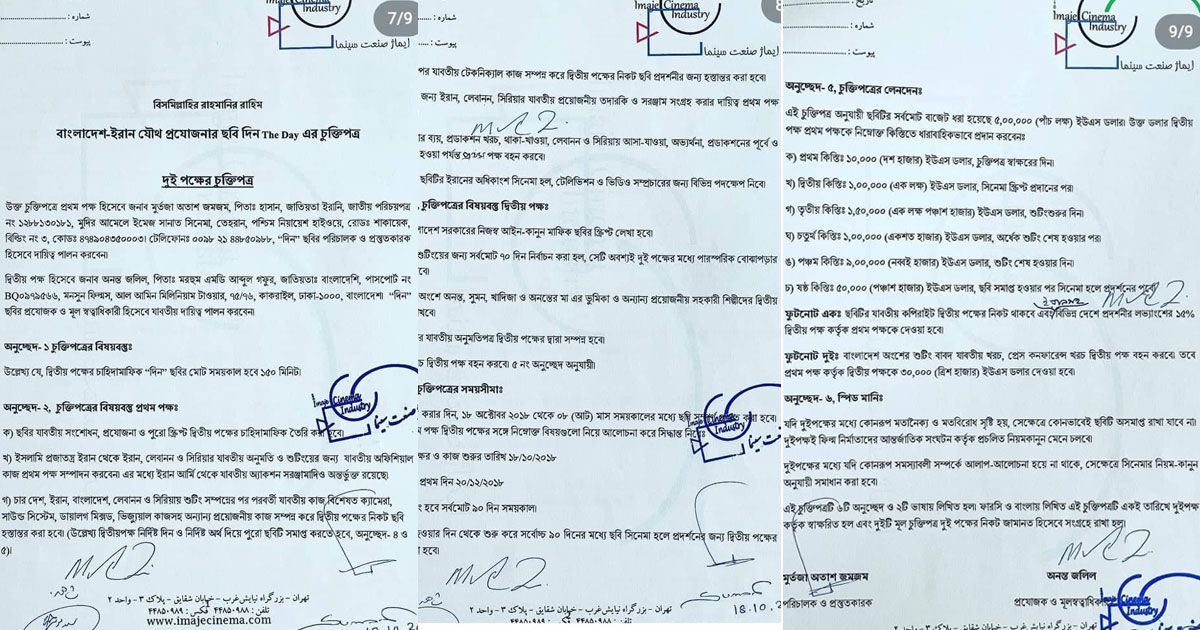 7/9
Imaje Cinema
Industry
ایماژ صنعت سینما
شماره :
پیوست :
বিসমিল্লাহির রাহমানির রাহিম
বাংলাদেশ-ইরান যৌথ প্রযোজনার ছবি দিন The Day এর চুক্তিপত্র
দুই পক্ষের চুক্তিপত্র
উক্ত চুক্তিপত্রে প্রথম পক্ষ হিসেবে জনাব মুর্তজা অতাশ জমজম, পিতাঃ হাসান, জাতিয়তা ইরানি, জাতীয় পরিচয়পত্র
নং ১২৮৮১৩০১৮১, মুদির আমেলে ইমেজ সানাত সিনেমা, তেহরান, পশ্চিম নিয়ায়েশ হাইওয়ে, রোডঃ শাকায়েক,
বিল্ডিং নং ৩, কোডঃ ৪৭৪৯০৪৩৫০০০৩। টেলিফোনঃ ০০৯৮ ২১ ৪৪৮৫০৯৮৮, “দিন” ছবির পরিচালক ও প্রস্তুতকারক
হিসেবে দায়িত্ব পালন করবেন।
দ্বিতীয় পক্ষ হিসেবে জনাব অনন্ত জলিল, পিতাঃ মরহুম এমডি আব্দুল গফুর, জাতিয়তাঃ বাংলাদেশি, পাসপোর্ট নং
BQ০৯৭৯৫৬৬, মনসুন ফিল্মস, আল আমিন মিলিনিয়াম টাওয়ার, ৭৫/৭৬, কাকরাইল, ঢাকা-১০০০, বাংলাদেশ। “দিন”
ছবির প্রযোজক ও মূল স্বত্বাধিকারী হিসেবে যাবতীয় দায়িত্ব পালন করবেন।
অনুচ্ছেদ- ১ চুক্তিপত্রের বিষয়বস্তুঃ
উল্লেখ্য যে, দ্বিতীয় পক্ষের চাহিদামাফিক “দিন” ছবির মোট সময়কাল হবে ১৫০ মিনিট।
অনুচ্ছেদ- ২, চুক্তিপত্রের বিষয়বস্তু প্রথম পক্ষঃ
ক) ছবির যাবতীয় সংশোধন, প্রযোজনা ও পুরো স্ক্রিপ্ট দ্বিতীয় পক্ষের চাহিদামাফিক তৈরি করা হবে।
খ) ইসলামি প্রজাতন্ত্র ইরান থেকে ইরান, লেবানন ও সিরিয়ার যাবতীয় অনুমতি ও শুটিংয়ের জন্য যাবতীয় অফিশিয়াল
কাজ প্রথম পক্ষ সম্পাদন করবেন। এর মধ্যে ইরান আর্মি থেকে যাবতীয় অ্যাকশন সরঞ্জামাদিও অন্তর্ভুক্ত রয়েছে।
গ) চার দেশ, ইরান, বাংলাদেশ, লেবানন ও সিরিয়ায় শুটিং সম্পয়ের পর পরবর্তী যাবতীয় কাজ বিশেষত ক্যামেরা,
সাউন্ড সিস্টেম, ডায়ালগ মিক্সড, ভিজ্যুয়াল কাজসহ অন্যান্য প্রয়োজনীয় কাজ সম্পন্ন করে দ্বিতীয় পক্ষের নিকট ছবি
হস্তান্তর করা হবে। (উল্লেখ্য দ্বিতীয়পক্ষ নির্দিষ্ট দিন ও নির্দিষ্ট অর্থ দিয়ে পুরো ছবিটি সমাপ্ত করতে হবে, অনুচ্ছেদ- ৪ ও
৫)।
Imaje Cinema
Industry
تهران - بزرگراه نیایش غرب - خیابان شقایق - پلاک ۳ - واحد ۲
تلفن : ۴۴۸۵۰۹۸۸ فکس : ۴۴۸۵۰۹۸۹
www.imajecinema.com
Imaje Cinema
Industry
ایماژ صنعت سینما
শماره :
পر যাবতীয় টেকনিক্যাল কাজ সম্পন্ন করে দ্বিতীয় পক্ষের নিকট ছবি প্রদর্শনীর জন্য হস্তান্তর করা হবে।
জন্য ইরান, লেবানন, সিরিয়ার যাবতীয় প্রয়োজনীয় তদারকি ও সরঞ্জাম সংগ্রহ করার দায়িত্ব প্রথম পক্ষ
র ব্যয়, প্রডাকশন খরচ, থাকা-খাওয়া, লেবানন ও সিরিয়ায় আসা-যাওয়া, অভ্যর্থনা, প্রডাকশনের পূর্বে ও
হওয়া পর্যন্ত পক্ষ বহন করবে।
ছবিটির ইরানের অধিকাংশ সিনেমা হল, টেলিভিশন ও ভিডিও সম্প্রচারের জন্য বিভিন্ন পদক্ষেপ নিবে।
চুক্তিপত্রের বিষয়বস্তু দ্বিতীয় পক্ষঃ
াদেশ সরকারের নিজস্ব আইন-কানুন মাফিক ছবির স্ক্রিপ্ট লেখা হবে।
শুটিংয়ের জন্য সর্বমোট ৭০ দিন নির্বাচন করা হল, সেটি অবশ্যই দুই পক্ষের মধ্যে পারস্পরিক বোঝাপড়ার
বে।
অংশে অনন্ত, সুমন, খাদিজা ও অনন্তের মা এর ভুমিকা ও অন্যান্য প্রয়োজনীয় সহকারী শিল্পীদের দ্বিতীয়
খবে।
র যাবতীয় অনুমতিপত্র দ্বিতীয় পক্ষের দ্বারা সম্পন্ন হবে।
চ দ্বিতীয় পক্ষ বহন করবে। ৫ নং অনুচ্ছেদ অনুযায়ী।
চুক্তিপত্রের সময়সীমাঃ
করার দিন, ১৮ অক্টোবর ২০১৮ থেকে ০৮ (আট) মাস সময়কালের মধ্যে ছবি করা হবে।
ম পক্ষ দ্বিতীয় পক্ষের সঙ্গে নিম্নোক্ত বিষয়গুলো নিয়ে আলোচনা করে সিদ্ধান্ত নিবেঃ
ক্ষর ও কাজ শুরুর তারিখ ১৮/১০/২০১৮
প্রথম দিন ২০/১২/২০১৮
ং হবে সর্বমোট ৯০ দিন সময়কাল।
হওয়ার দিন থেকে শুরু করে সর্বোচ্চ ৯০ দিনের মধ্যে ছবি সিনেমা হলে প্রদর্শনের জন্য দ্বিতীয় পক্ষের
হবে।
Imaje Cinema
Industry
18.10.
تهران - بزرگراه نیایش غرب - خیابان شقایق - پلاک ۳ - واحد ۲
تلفن : ۴۴۸۵۰۹۸۸ فکس : ۴۴۸۵۰۹۸۹
9/9
Imaje Cinema
Industry
ایماژ صنعت سینما
تاریخ :
شماره :
پیوست :
অনুচ্ছেদ- ৫, চুক্তিপত্রের লেনদেনঃ
এই চুক্তিপত্র অনুযায়ী ছবিটির সর্বমোট বাজেট ধরা হয়েছে ৫,০০,০০০ (পাঁচ লক্ষ) ইউএস ডলার। উক্ত ডলার দ্বিতীয়
পক্ষ প্রথম পক্ষকে নিম্নোক্ত কিস্তিতে ধারাবাহিকভাবে প্রদান করবেনঃ
ক) প্রথম কিস্তিঃ ১০,০০০ (দশ হাজার) ইউএস ডলার, চুক্তিপত্র স্বাক্ষরের দিন।
খ) দ্বিতীয় কিস্তিঃ ১,০০,০০০ (এক লক্ষ) ইউএস ডলার, সিনেমা স্ক্রিপ্ট প্রদানের পর।
গ) তৃতীয় কিস্তিঃ ১,৫০,০০০ (এক লক্ষ পঞ্চাশ হাজার) ইউএস ডলার, শুটিংশুরুর দিন।
ঘ) চতুর্থ কিস্তিঃ ১,০০,০০০ (একশত হাজার) ইউএস ডলার, অর্ধেক শুটিং শেষ হওয়ার পর।
ঙ) পঞ্চম কিস্তিঃ ৯,০০,০০০ (নব্বই হাজার) ইউএস ডলার, শুটিং শেষ হওয়ার দিন।
চ) ষষ্ঠ কিস্তিঃ ৫০,০০০ (পঞ্চাশ হাজার) ইউএস ডলার, ছবি সমাপ্ত হওয়ার পর সিনেমা হলে প্রদর্শনের পূর্বে।
ফুটনোট একঃ ছবিটির যাবতীয় কপিরাইট দ্বিতীয় পক্ষের নিকট থাকবে এবং বিভিন্ন দেশে প্রদর্শনীর লভ্যাংশের ১৫%
দ্বিতীয় পক্ষ কর্তৃক প্রথম পক্ষকে দেওয়া হবে।
ফুটনোট দুইঃ বাংলাদেশ অংশের শুটিং বাবদ যাবতীয় খরচ, প্রেস কনফারেন্স খরচ দ্বিতীয় পক্ষ বহন করবে। তবে
প্রথম পক্ষ কর্তৃক দ্বিতীয় পক্ষকে ৩০,০০০ (ত্রিশ হাজার) ইউএস ডলার দেওয়া হবে।
অনুচ্ছেদ- ৬, স্পিড মানিঃ
যদি দুইপক্ষের মধ্যে কোনরূপ মতানৈক্য ও মতবিরোধ সৃষ্টি হয়, সেক্ষেত্রে কোনভাবেই ছবিটি অসমাপ্ত রাখা যাবে না।
দুইপক্ষই ফিল্ম নির্মাতাদের আন্তর্জাতিক সংঘটন কর্তৃক প্রচলিত নিয়মকানুন মেনে চলবে।
দুইপক্ষের মধ্যে যদি কোনরূপ সমস্যাবলী সম্পর্কে আলাপ-আলোচনা হয়ে না থাকে, সেক্ষেত্রে সিনেমার নিয়ম-কানুন
অনুযায়ী সমাধান করা হবে।
এই চুক্তিপত্রটি ৬টি অনুচ্ছেদ ও ২টি ভাষায় লিখিত হল। ফারসি ও বাংলায় লিখিত এই চুক্তিপত্রটি একই তারিখে দুইপক্ষ
কর্তৃক স্বাক্ষরিত হল এবং দুইটি মূল চুক্তিপত্র দুই পক্ষের নিকট জামানত হিসেবে সংগ্রহে রাখা হল।
মুর্তজা অতাশ জমজম
পরিচালক ও প্রস্তুতকারক
অনন্ত জলিল
প্রযোজক ও মূলস্বত্বাধিকারী
Imaje Cinema
Industry
تهران - بزرگراه نیایش غرب - خیابان شقایق - پلاک ۳ - واحد ۲